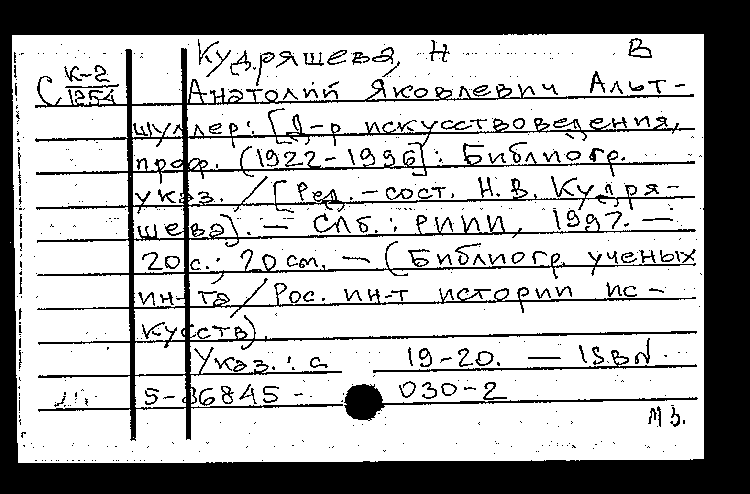 Кудряшева, Н В
С К-2
1254
Анатолий Яковлевич Альт-
шуллер: [Д-р искусствоведения,
проф. (1922-1996]: Библиогр.
указ. / [Ред.-сост. Н. В. Кудря-
шева]. — СПб.: РИИИ, 1997. —
20 с.; 20 см. — (Библиогр. ученых
ин-та / Рос. ин-т истории ис-
кусств).
Указ.: с 19-20. — ISBN.
5-86845-030-2